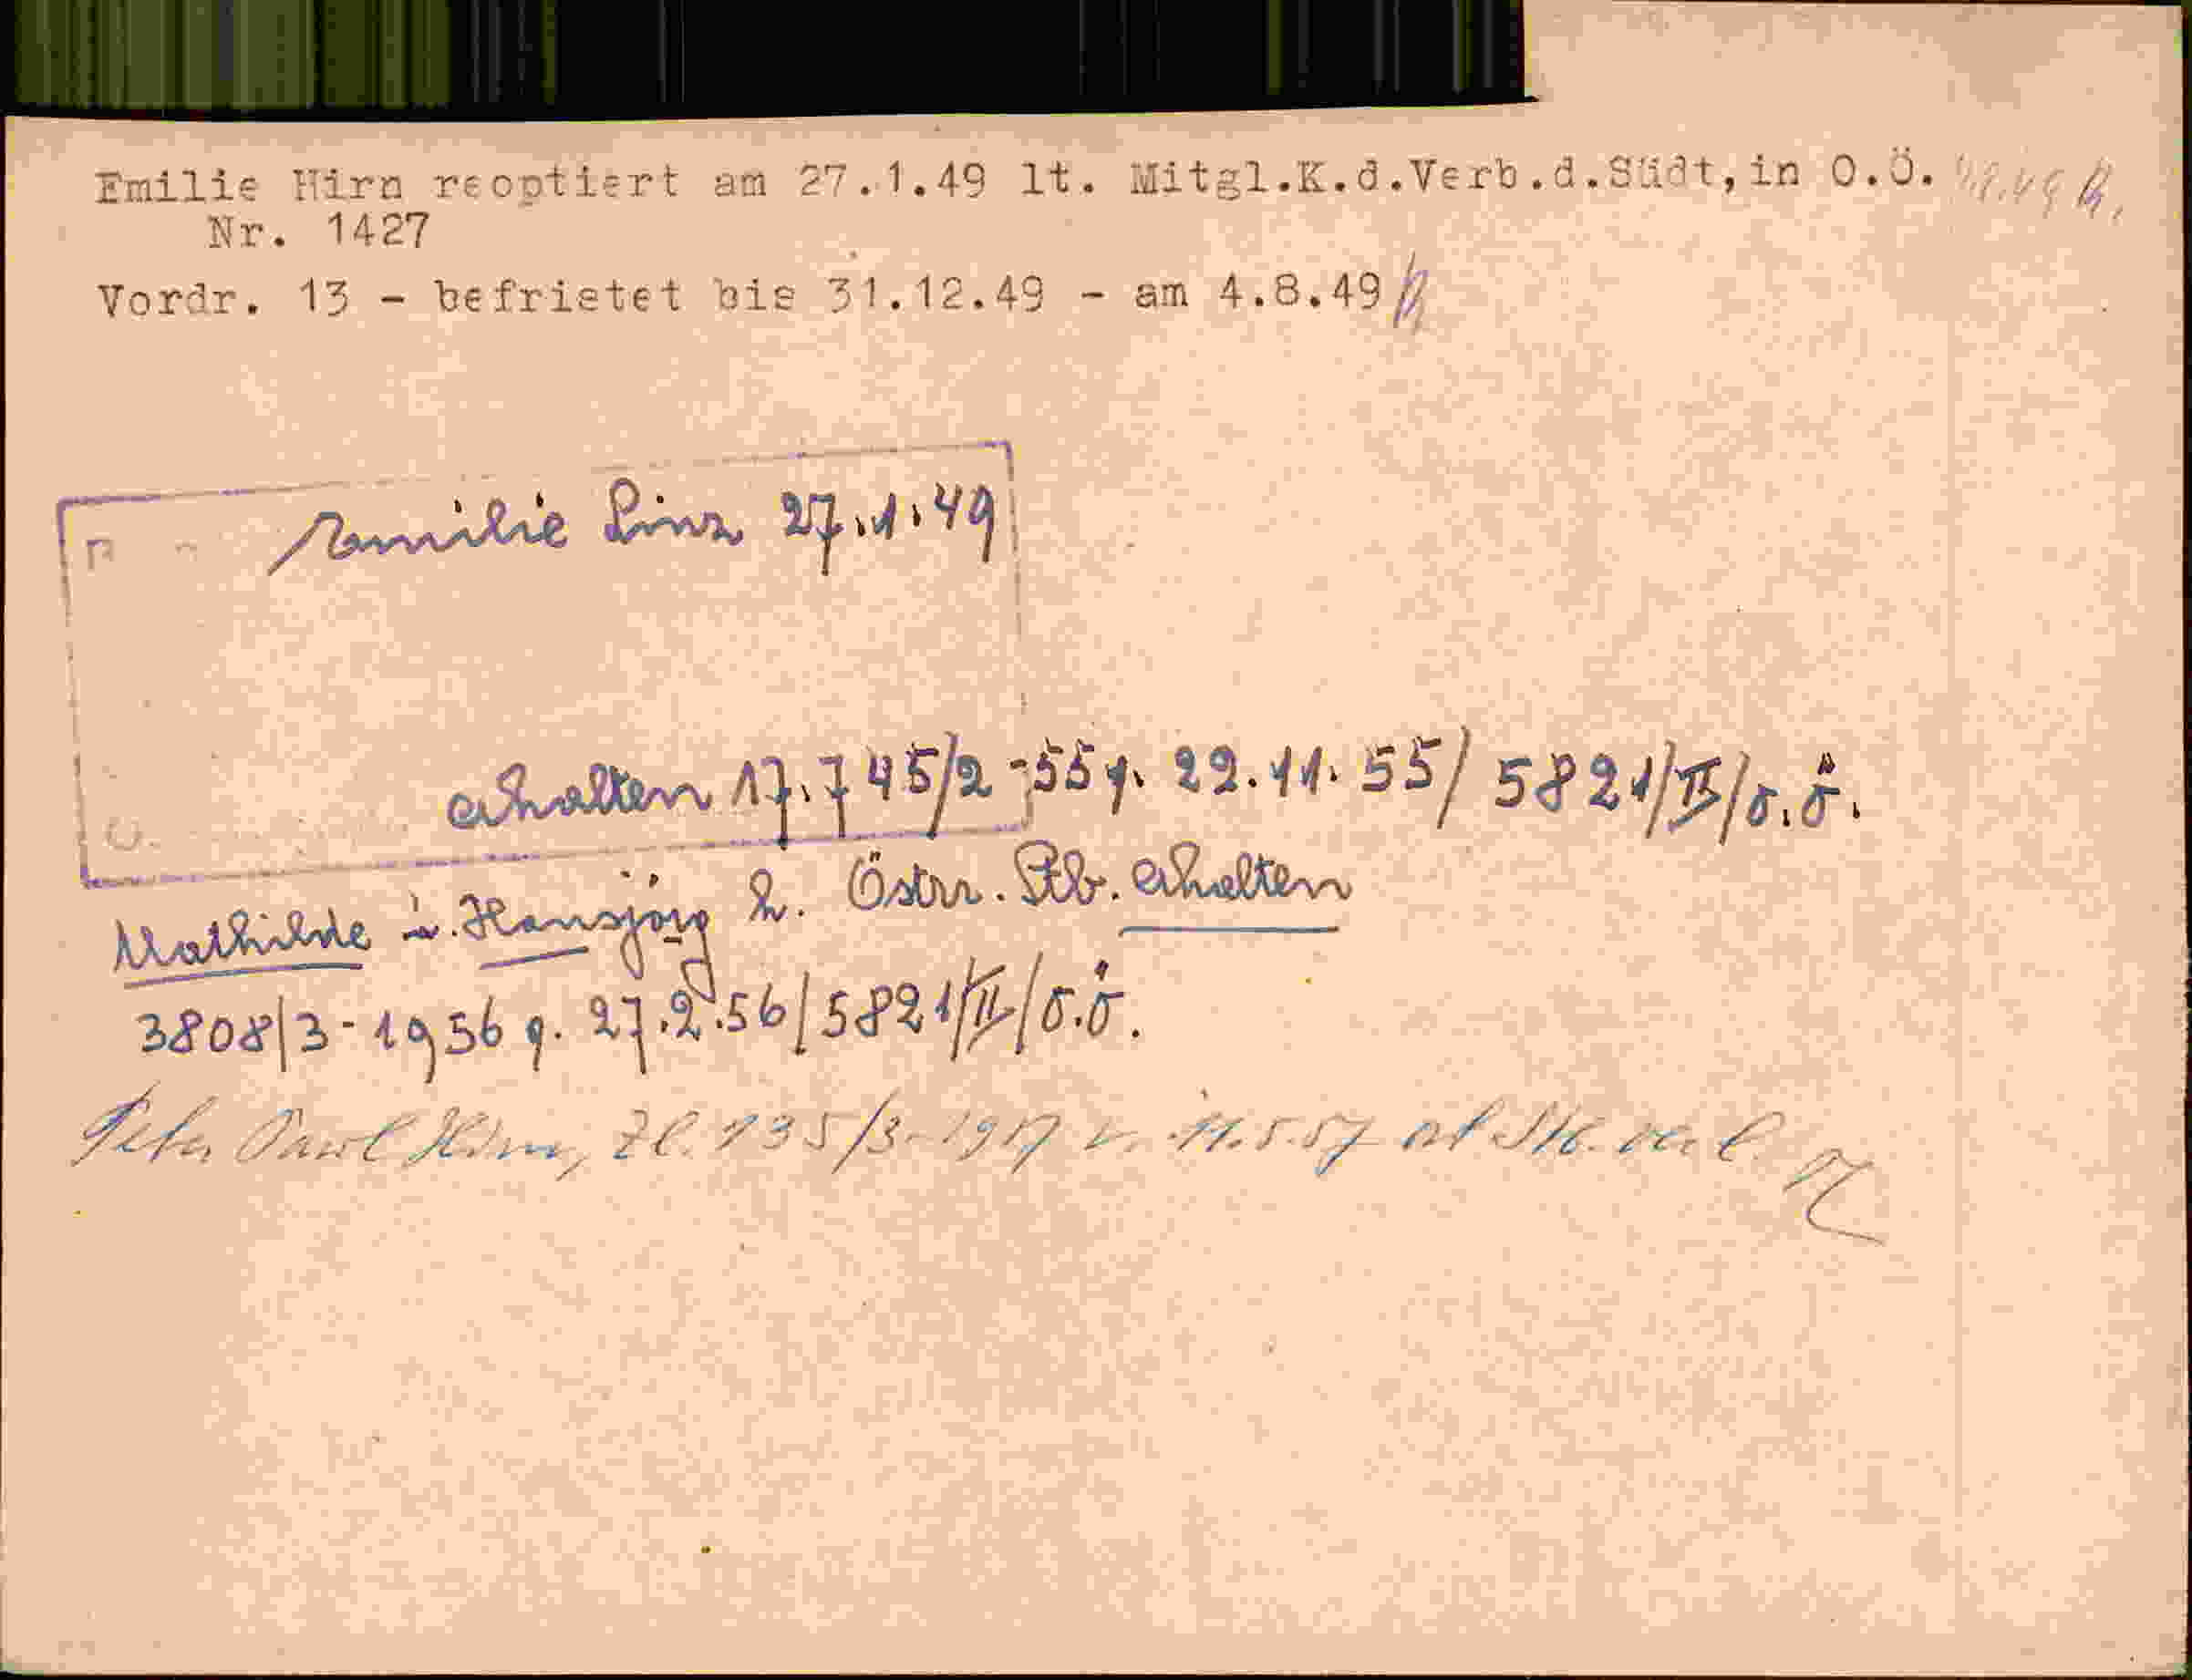 Emilie Hirn reoptiert am 27.1.49 lt. Mitgl.K.d.Verb.d.Südt,in O.Ö.
Nr. 1427
Vordr. 13 - befristet bis 31.12.49 - am 4.8.49
Emilie Linz 27.1.49
erhalten 17.745/2-55 v. 22.11.55/ 5821/II/O.Ö.
Mathilde u. Hansjörg h. Östrr. Stb. erhalten
3808/3-1956 v. 27.2.56/5821/II/O.Ö.
Peter Paul Hirn, Zl. 135/3-1957 v. 11.5.57 Stb.